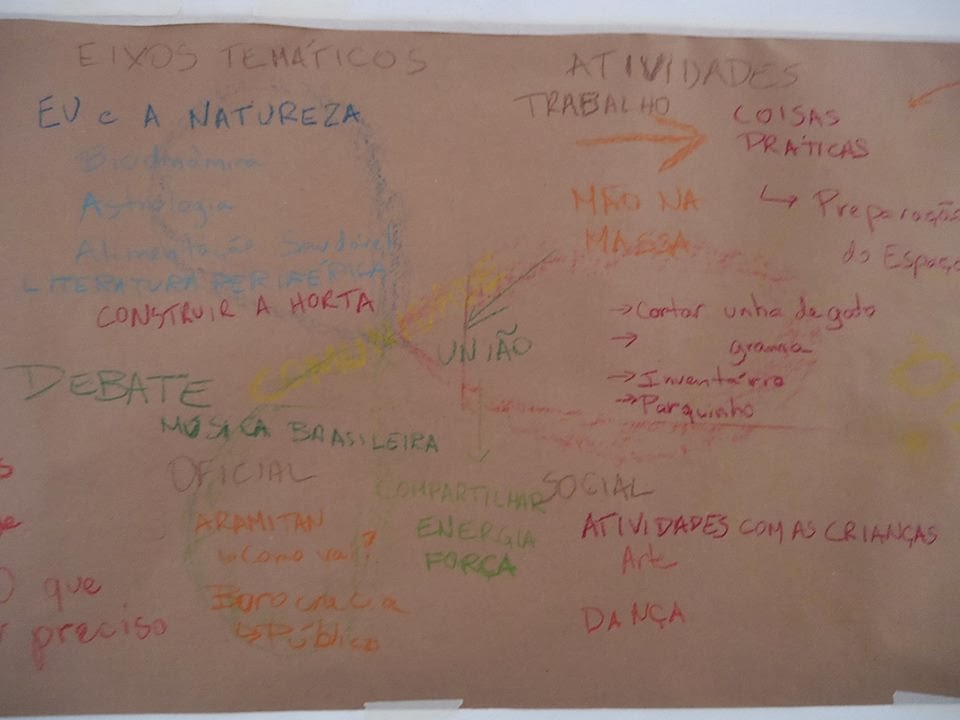 EIXOS TEMÁTICOS
EU e A NATUREZA
Biodinâmica
Astrologia
Alimentação Saudável
LITERATURA PERIFÉRICA
CONSTRUIR A HORTA
DEBATE
MÚSICA BRASILEIRA
UNIÃO
ATIVIDADES
TRABALHO
COISAS
PRÁTICAS
↳ Preparação
do Espaço
MÃO NA
MASSA
→ Cortar unha de gato
→ grama
→ Inventário
→ Parquinho
OFICIAL
ARAMITAN
↳ Como vai?
Burocracia
↳ Público
COMPARTILHAR
ENERGIA
FORÇA
SOCIAL
ATIVIDADES COM AS CRIANÇAS
Arte
DANÇA
O que
preciso